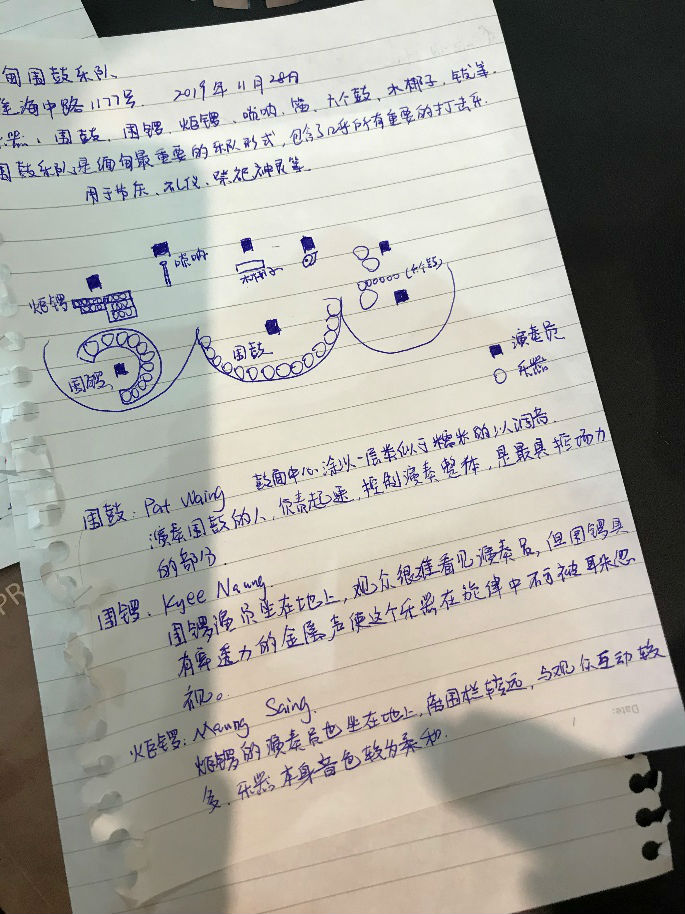 甸围鼓乐队
淮海中路1177号. 2019年11月28日
乐器: 围鼓、围锣、矩锣、唢呐、笛、六个鼓、木梆子、钹等.
围鼓乐队是缅甸最重要的乐队形式,包含了几乎所有重要的打击乐.
用于节庆、礼仪、祭祀神灵等.
唢呐
木梆子
(六个鼓)
矩锣
围鼓
围锣
演奏员
乐器
围鼓: Pat Waing 鼓面中心涂以一层类似于糯米的以调音.
演奏围鼓的人,负责起乐,控制演奏整体,是最具控场力
的部分.
围锣: Kyee Naung.
围锣演员坐在地上,观众很难看见演奏员,但围锣具
有穿透力的金属声使这个乐器在旋律中不可被耳朵忽
视。
矩锣: Maung Saing.
矩锣的演奏员也坐在地上,离围栏较远,与观众互动较
多.乐器本身音色较为柔和.
Date: